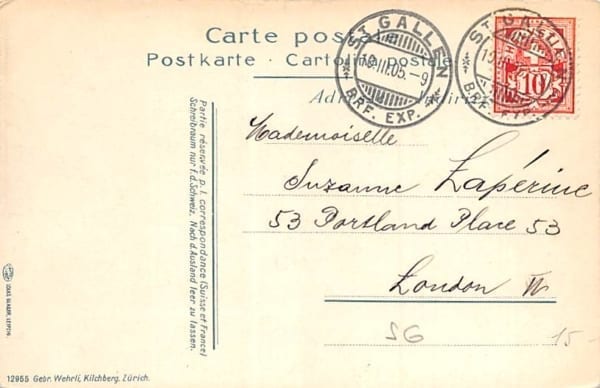 Carte postale
Postkarte - Cartolina postale
ST. GALLEN
19.III.05.-9
BRF. EXP.
ST. GALLEN
BRF. EXP.
10
Mademoiselle
Suzanne Lapérine
53 Portland Place 53
London W
SG
15-
Partie réservée p. l. correspondance (Suisse et France)
Schreibraum nur f. d. Schweiz. Nach d. Ausland leer zu lassen.
LOUIS GLASER, LEIPZIG.
12955 Gebr. Wehrli, Kilchberg. Zürich.